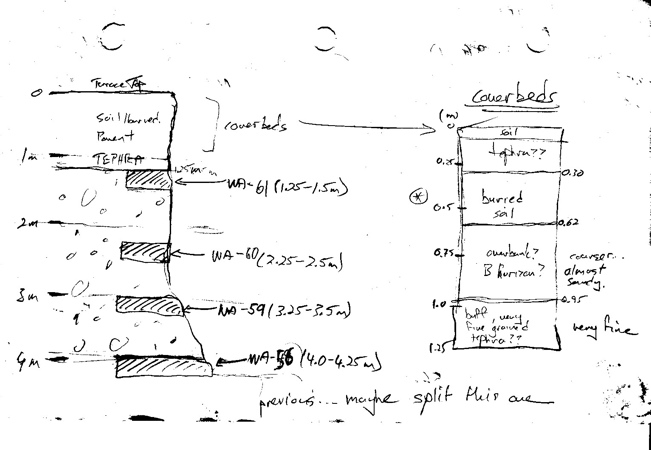 Terrace Top
0
soil/burred.
Parent
1m
TEPHRA
1.25m
coverbeds
WA-61 (1.25-1.5m)
2m
WA-60 (2.25-2.5m)
3m
WA-59 (3.25-3.5m)
4m
(4.0-4.25m)
previous... maybe split this one
coverbeds
(m)
0
soil
tephra??
0.25
0.30
burred
soil
0.5
0.62
overbank?
B Horizon?
0.75
courser...
almost
sandy.
1.0
0.95
buff, very
fine ground
tephra??
very fine
1.25